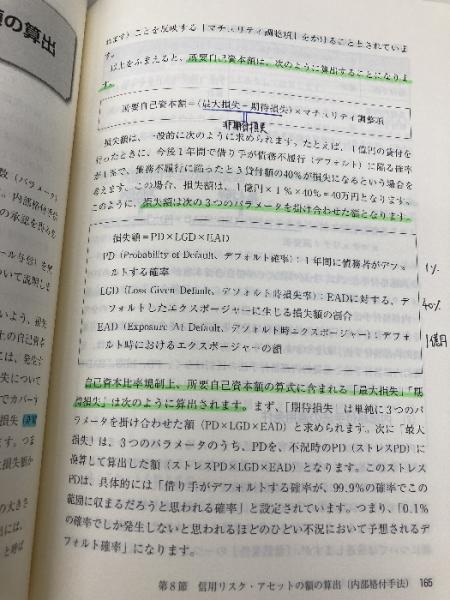 の算出
数（パラメータ
内部格付手法
れます）ことを反映する「マチュリティ調整項」をかけることとされていま
す。
以上をふまえると、所要自己資本額は、次のように算出することになりま
す。
所要自己資本額＝（最大損失－期待損失）×マチュリティ調整項
非期待損失
損失額は、一般的に次のように求められます。たとえば、1億円の貸付を
行ったときに、今後1年間で借り手が債務不履行（デフォルト）に陥る確率
が1％で、債務不履行に陥ったとき貸付額の40％が損失になるという場合を
考えます。この場合、損失額は、1億円×1％×40％＝40万円となります。
このように、損失額は次の3つのパラメータを掛け合わせた額となります。
損失額＝PD×LGD×EAD
PD（Probability of Default、デフォルト確率）：1年間に債務者がデフォ
ルトする確率
1%
LGD（Loss Given Default、デフォルト時損失率）：EADに対する、デ
フォルトしたエクスポージャーに生じる損失額の割合
40%
EAD（Exposure At Default、デフォルト時エクスポージャー）：デフォ
ルト時におけるエクスポージャーの額
1億円
自己資本比率規制上、所要自己資本額の算式に含まれる「最大損失」「期
待損失」は次のように算出されます。まず、「期待損失」は単純に3つのパ
ラメータを掛け合わせた額（PD×LGD×EAD）と求められます。次に「最大
損失」は、3つのパラメータのうち、PDを、不況時のPD（ストレスPD）に
換算して算出した額（ストレスPD×LGD×EAD）となります。このストレス
PDは、具体的には「借り手がデフォルトする確率が、99.9％の確率でこの
範囲に収まるだろうと思われる確率」と設定されています。つまり、「0.1％
の確率でしか発生しないと思われるほどのひどい不況において予想されるデ
フォルト確率」になります。
第8節 信用リスク・アセットの額の算出（内部格付手法） 165